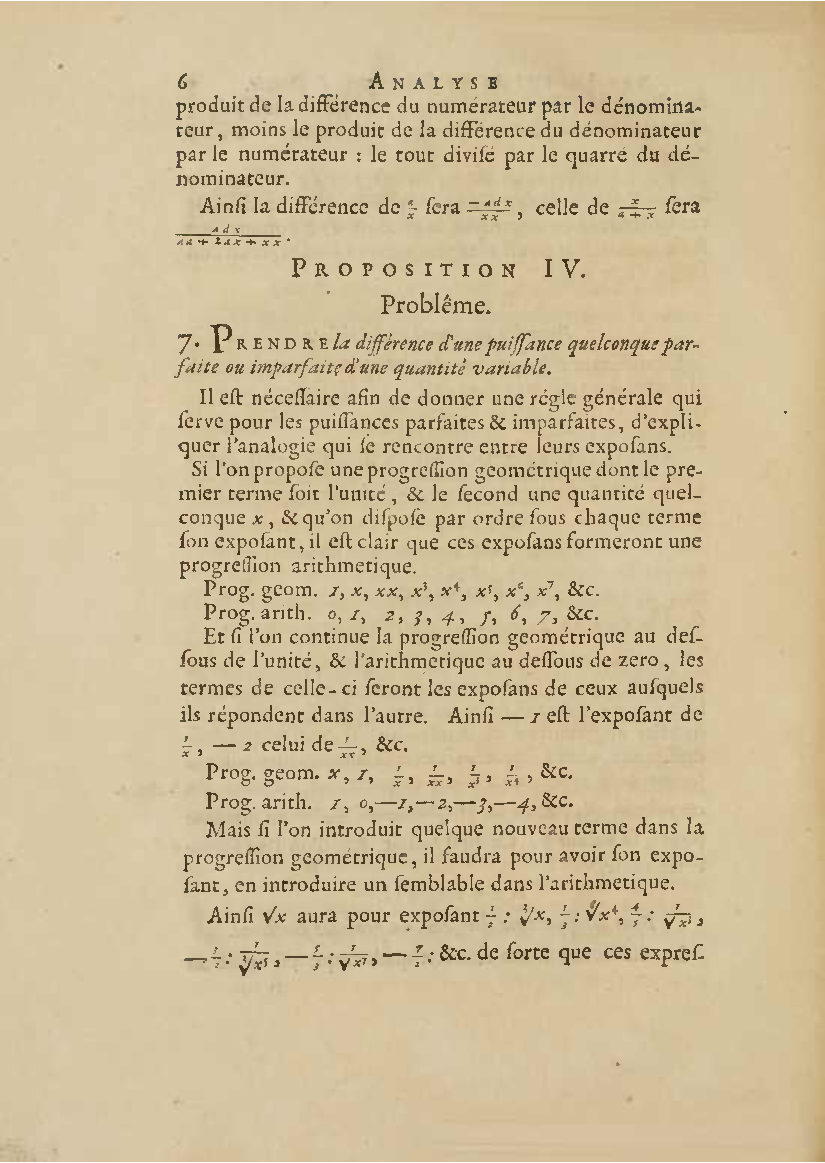 6 ANALYSE
produit de la différence du numérateur par le dénomina-
teur, moins le produit de la différence du dénominateur
par le numérateur : le tout divisé par le quarré du dé-
nominateur.
Ainſi la différence de a/x ſera −adx/xx, celle de x/(a+x) ſera
adx/(aa+2ax+xx).
PROPOSITION IV.
Problême.
7. PRENDRE la différence d'une puiſſance quelconque par-
faite ou imparfaite d'une quantité variable.
Il eſt néceſſaire afin de donner une régle générale qui
ſerve pour les puiſſances parfaites & imparfaites, d'expli-
quer l'analogie qui ſe rencontre entre leurs expoſans.
Si l'on propoſe une progreſſion geométrique dont le pre-
mier terme ſoit l'unité, & le ſecond une quantité quel-
conque x, & qu'on diſpoſe par ordre ſous chaque terme
ſon expoſant, il eſt clair que ces expoſans formeront une
progreſſion arithmetique.
Prog. geom. 1, x, xx, x³, x⁴, x⁵, x⁶, x⁷, &c.
Prog. arith. 0, 1, 2, 3, 4, 5, 6, 7, &c.
Et ſi l'on continue la progreſſion geométrique au deſ-
ſous de l'unité, & l'arithmetique au deſſous de zero, les
termes de celle-ci ſeront les expoſans de ceux auſquels
ils répondent dans l'autre. Ainſi — 1 eſt l'expoſant de
1/x, — 2 celui de 1/xx, &c.
Prog. geom. x, 1, 1/x, 1/xx, 1/x³, 1/x⁴, &c.
Prog. arith. 1, 0, —1, —2, —3, —4, &c.
Mais ſi l'on introduit quelque nouveau terme dans la
progreſſion geométrique, il faudra pour avoir ſon expo-
ſant, en introduire un ſemblable dans l'arithmetique.
Ainſi √x aura pour expoſant 1/2 : ∛x, 1/3 : ⁵√x⁴, 4/5 : 1/√x³,
— 3/2 : 1/∛x⁵, — 5/3 : 1/√x⁷, — 7/2 : &c. de ſorte que ces expreſ-